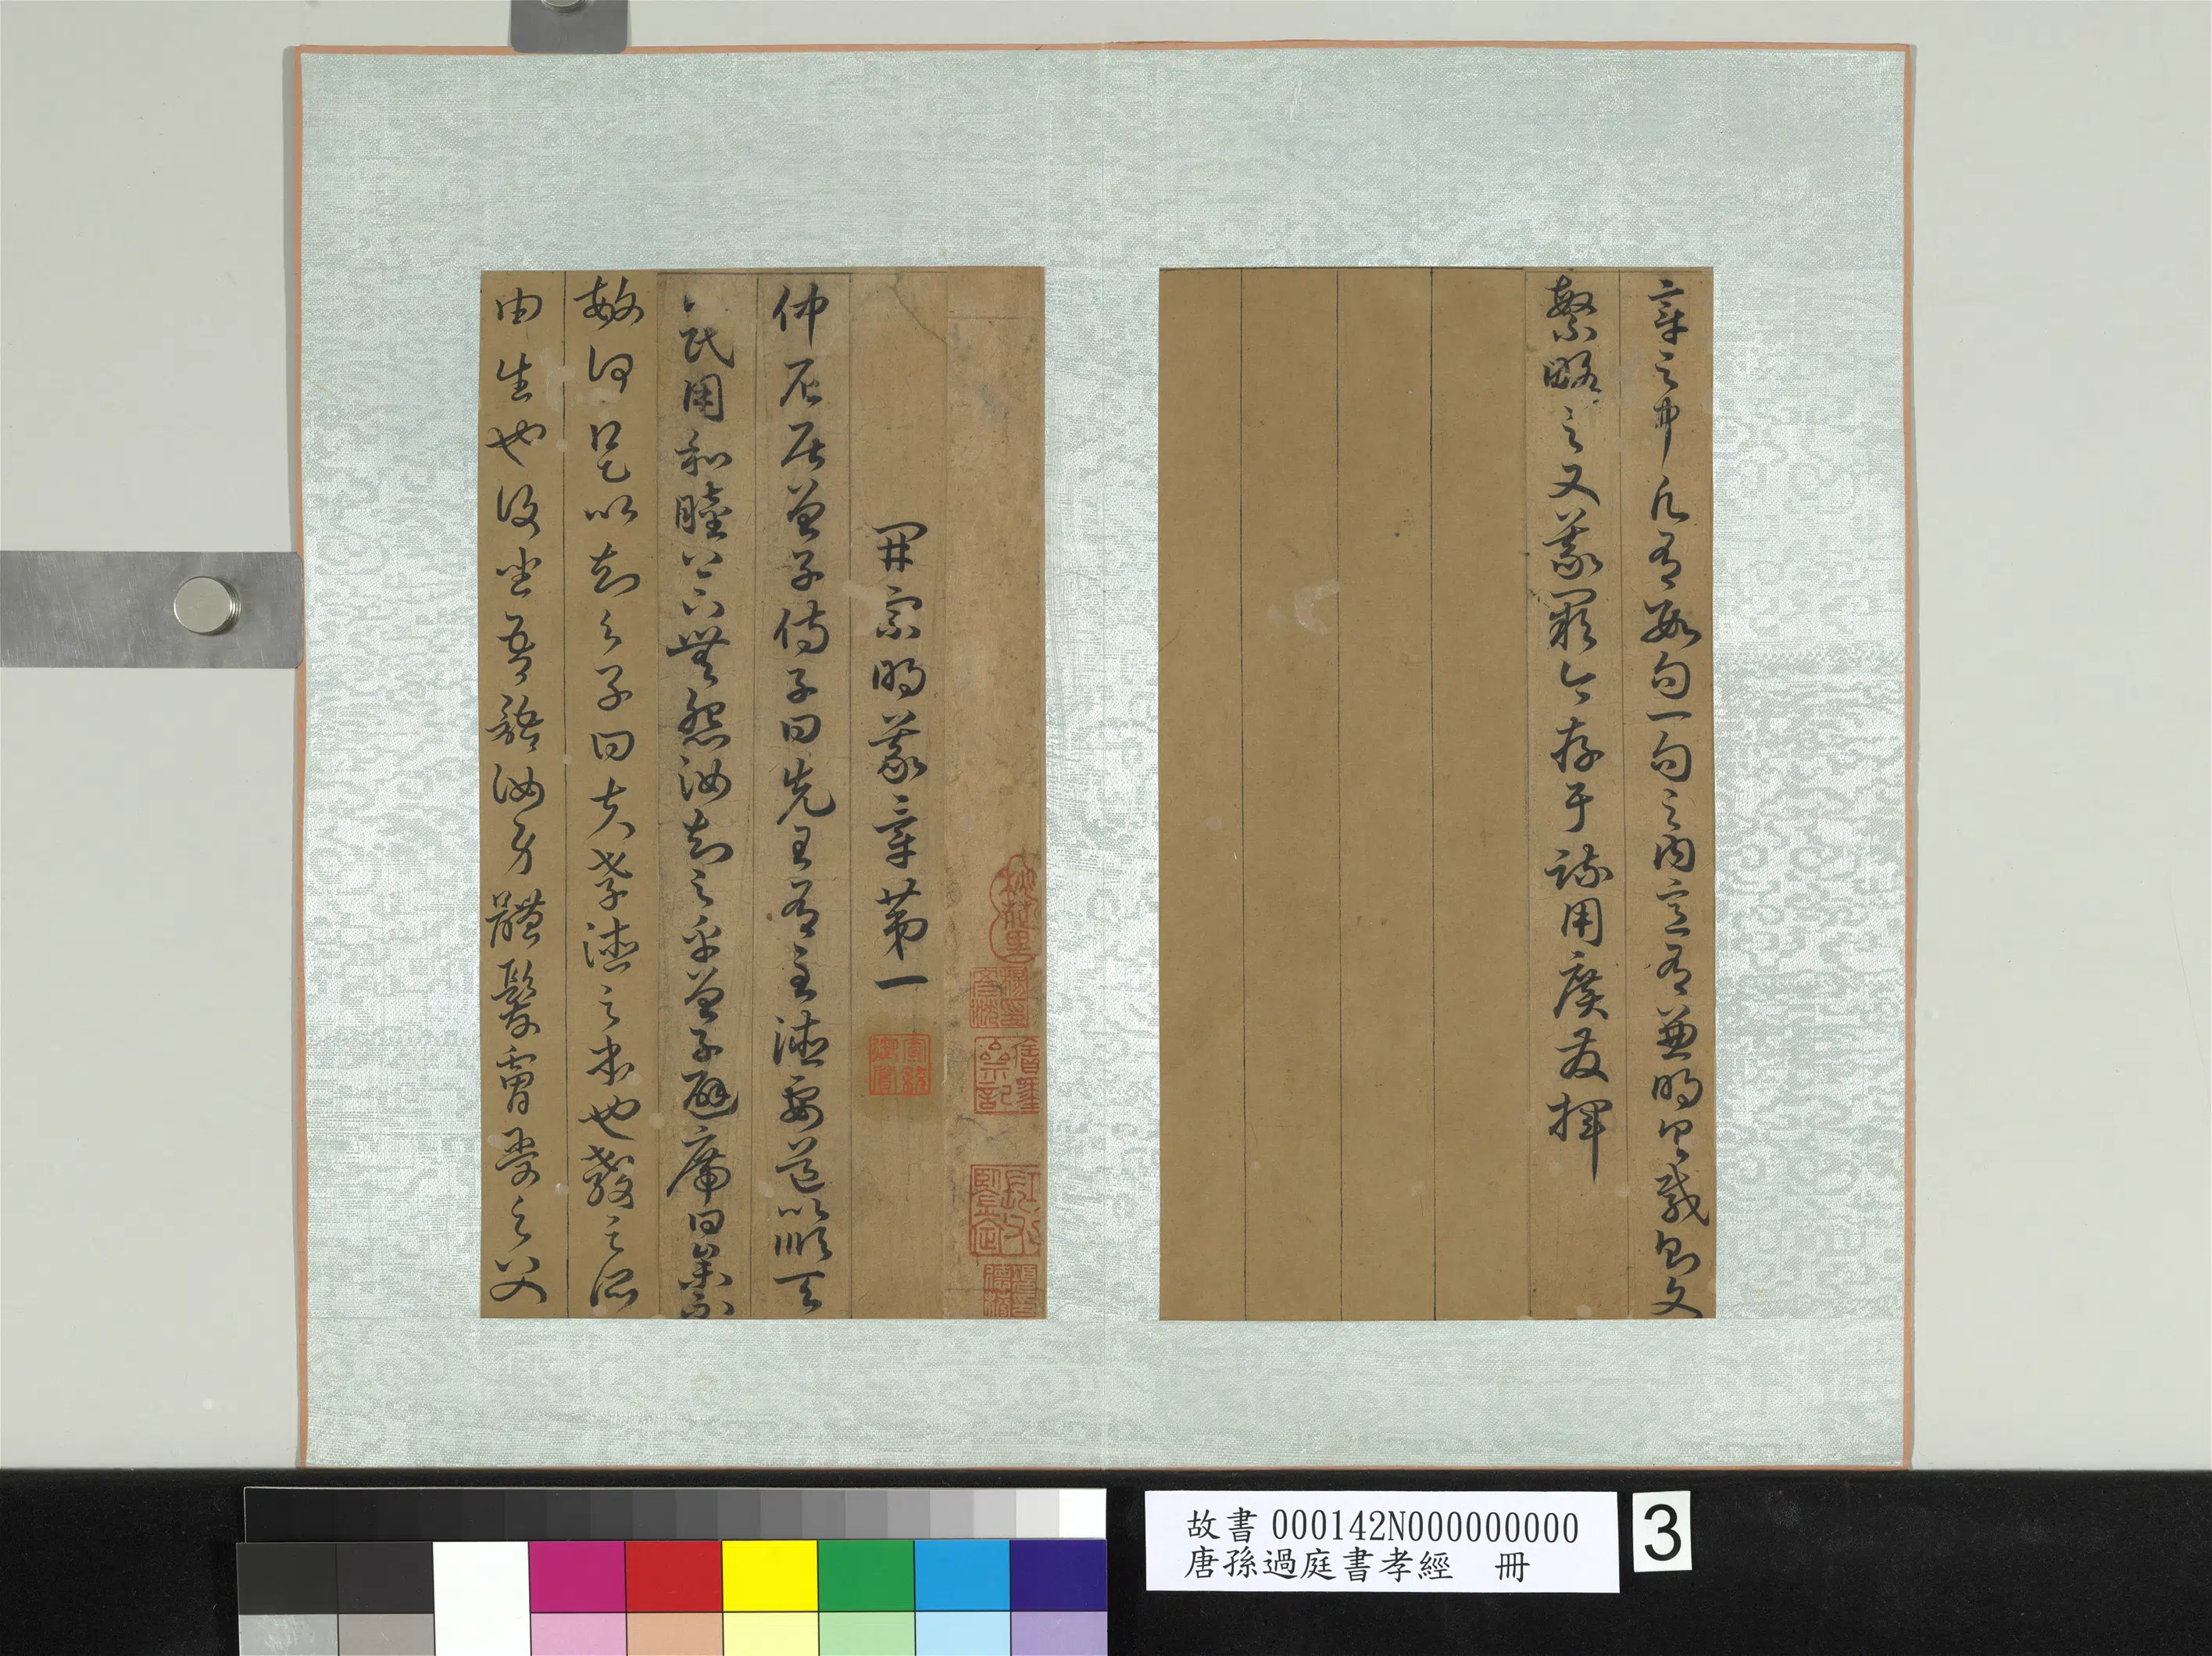 章之中凡有數句一句之內意有兼明具載則文
繁略之又義闕今存于疏用廣發揮
開宗明義章第一
仲尼居曾子侍子曰先王有至德要道以順天
下民用和睦上下無怨汝知之乎曾子避席曰參不
敏何足以知之子曰夫孝德之本也教之所
由生也復坐吾語汝身體髮膚受之父
故書 000142N000000000
唐孫過庭書孝經　冊
3